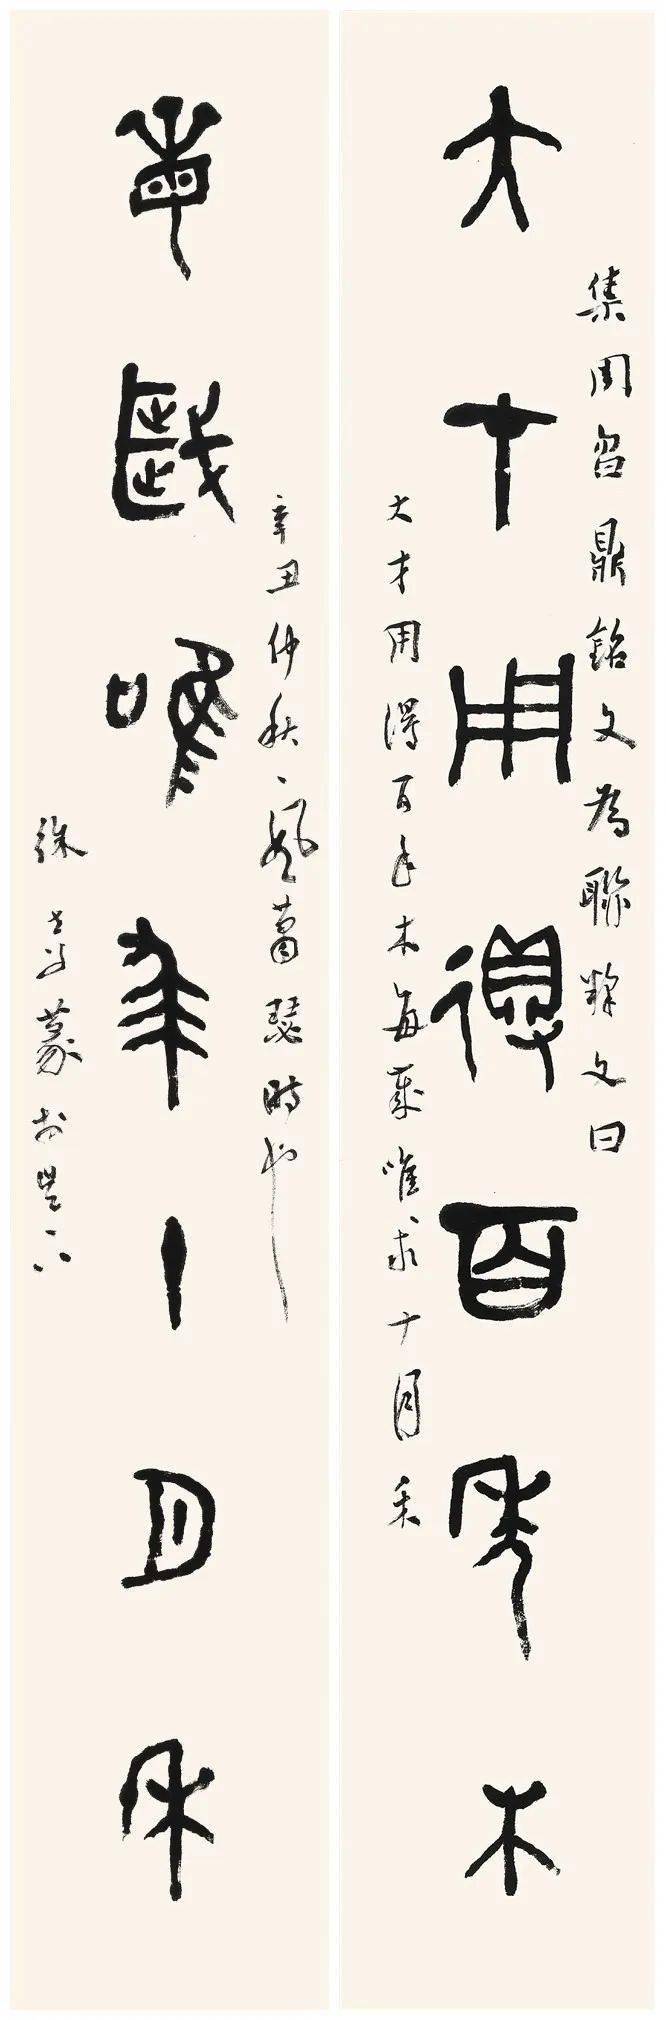 大才用得百年木
集周曶鼎铭文為聯釋文曰
大才用得百年木每歲唯求十月禾
每歲唯求十月禾
辛丑仲秋、風蕭瑟時也
徐
篆於